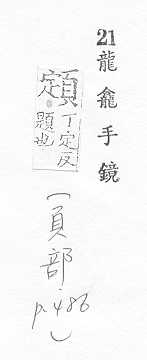 21 龍龕手鏡
顁 丁定反
題也
(頁部 p.486)